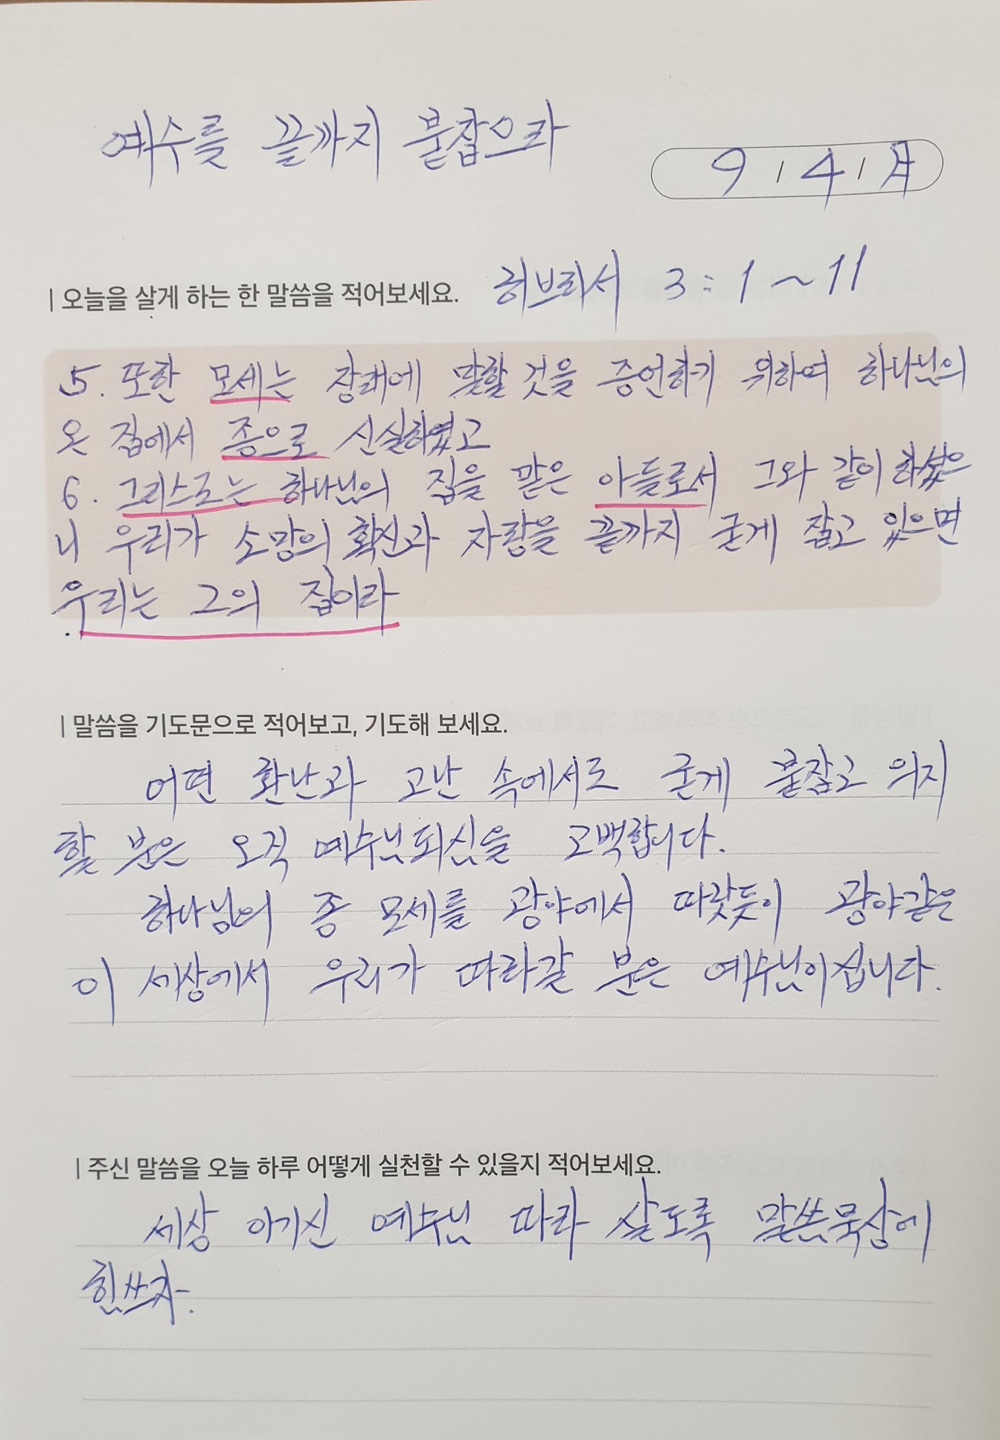 예수를 끝까지 붙잡으라
9 / 4 / 月
| 오늘을 살게 하는 한 말씀을 적어보세요. 히브리서 3:1~11
5. 또한 모세는 장래에 말할 것을 증언하기 위하여 하나님의
온 집에서 종으로 신실하였고
6. 그리스도는 하나님의 집을 맡은 아들로서 그와 같이 하셨으
니 우리가 소망의 확신과 자랑을 끝까지 굳게 잡고 있으면
우리는 그의 집이라
| 말씀을 기도문으로 적어보고, 기도해 보세요.
어떤 환난과 고난 속에서도 굳게 붙잡고 의지
할 분은 오직 예수님되심을 고백합니다.
하나님의 종 모세를 광야에서 따랐듯이 광야같은
이 세상에서 우리가 따라갈 분은 예수님이십니다.
| 주신 말씀을 오늘 하루 어떻게 실천할 수 있을지 적어보세요.
세상 이기신 예수님 따라 살도록 말씀묵상에
힘쓰자.